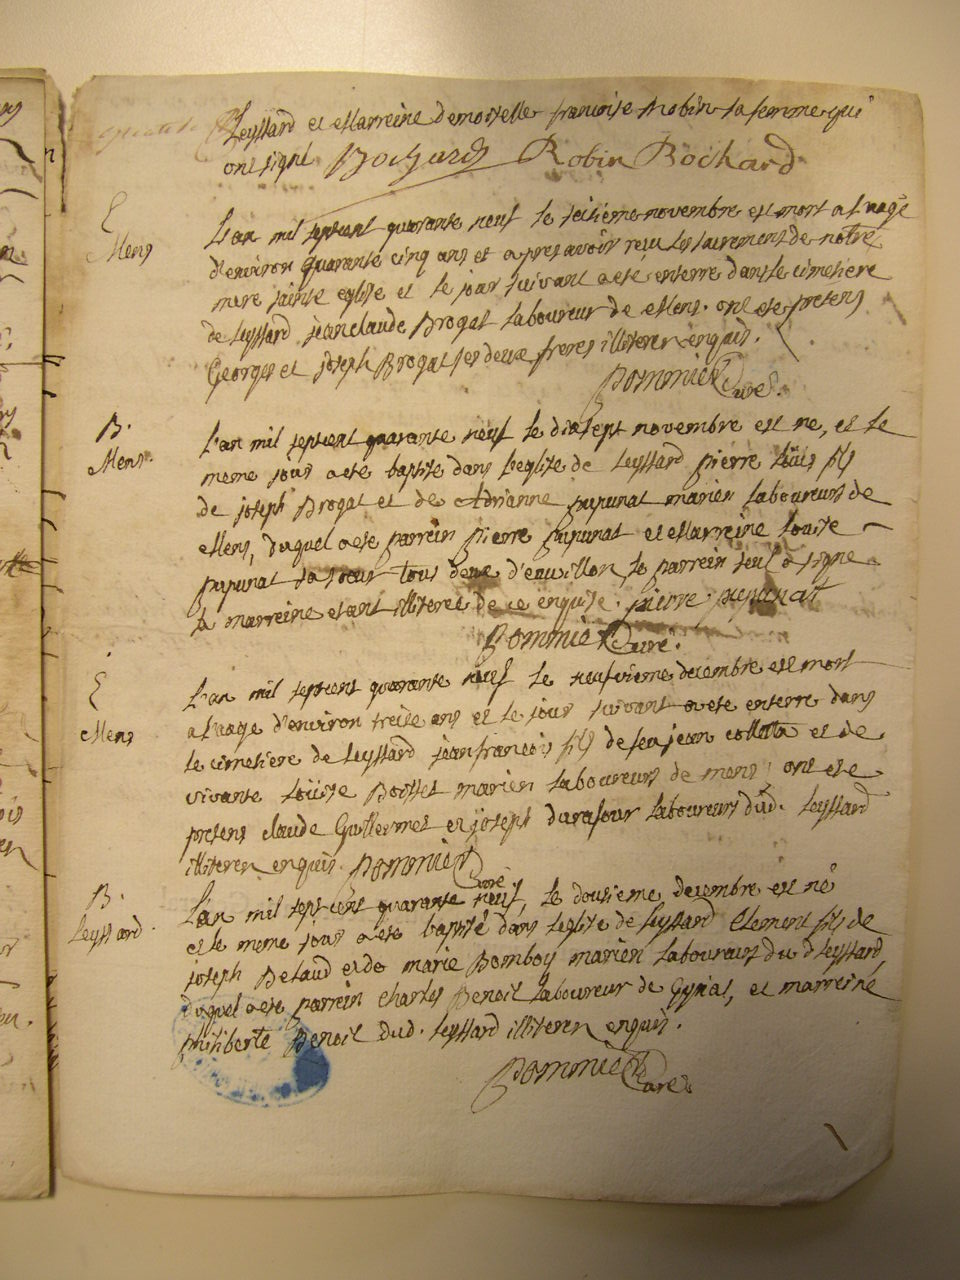 Leyssard et Marreine demoiselle francoise Robin sa femme qui
ont signé Bochard Robin Bochard
E
Mens
L'an mil septcent quarante neuf le seisieme novembre est mort a l'uage
d'environ quarante cinq ans et apres avoir reçu les sacrements de notre
mere sainte eglise et le jour suivant a eté enterré dans le cimetiere
de Leyssard jean claude Brogat laboureur de Mens. ont ete presens
Georges et joseph Brogat ses deux freres illiteres enquis.
Pommier Curé.
B.
Mens.
L'an mil septcent quarante neuf le dixsept novembre est ne, et le
meme jour a eté baptisé dans l'eglise de Leyssard pierre loüis fils
de joseph Brogat et de Adrianne pupunat mariés laboureurs de
Mens, duquel a ete parrein pierre pupunat et Marreine louise
pupunat sa soeur tous deux d'euvillon le parrein seul a signé
la marreine etant illiteree de ce enquise. pierre pupunat
Pommier Curé.
E
Mens
L'an mil septcent quarante neuf le neufvieme decembre est mort
a l'uage d'environ treise ans et le jour suivant a ete enterré dans
le cimetiere de Leyssard jean francois fils de feu jean colletta et de
vivante loüise Bosset mariés laboureurs de mens; ont ete
presens claude Guillermet et joseph durafour laboureurs dud. Leyssard
illiteres enquis. Pommier Curé
B.
Leyssard.
L'an mil sept cent quarante neuf, le dousieme decembre est né
et le meme jour a ete baptisé dans l'eglise de Leyssard Clement fils de
joseph Belaud et de marie Bomboy mariés laboureurs du d Leyssard,
duquel a ete parrein Charles Benoit laboureur de et marreine
philiberte Benoit dud. Leyssard illiteres enquis.
Pommier Curé